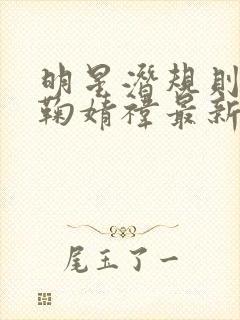 明星潜规则
鞠婧祎最新
尾玉了一